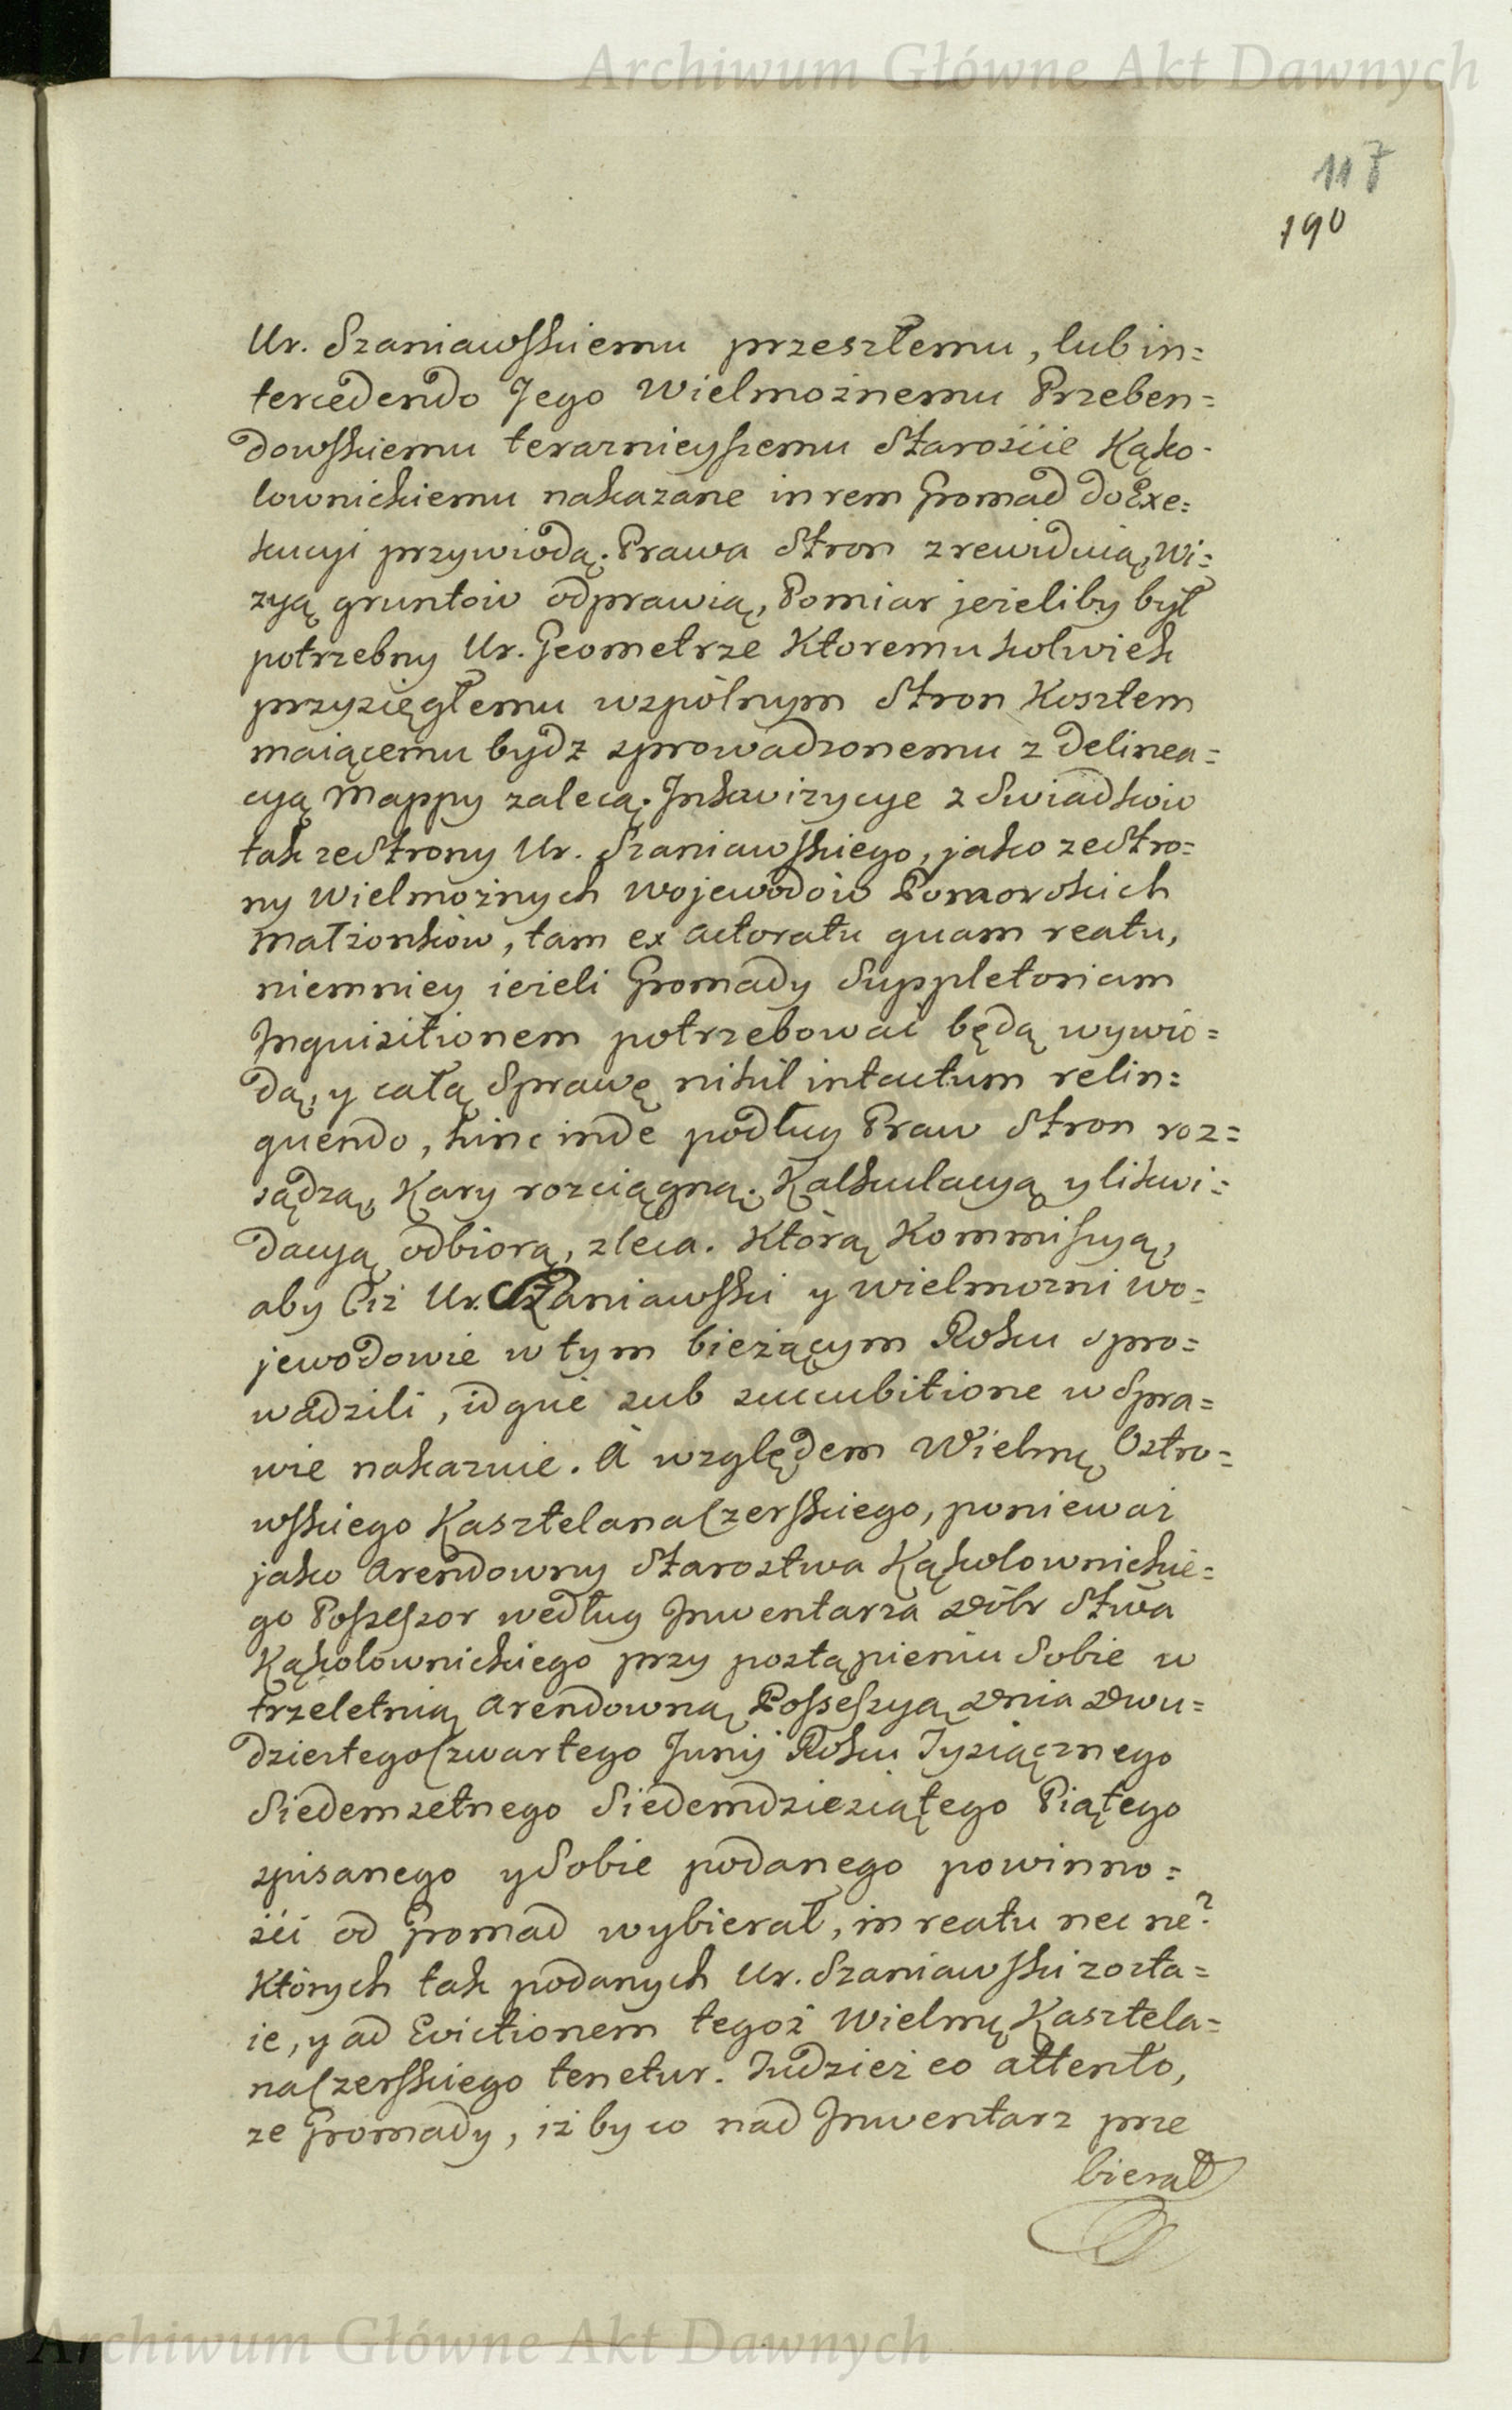 Archiwum Główne Akt Dawnych
117
190
Ur. Szaniawskiemu przeszłemu, lub in=
tercedendo Jego Wielmożnemu Przeben=
dowskiemu teraznieyszemu Starośćie Kąko-
lownickiemu nakazane in rem Gromad do Exe=
kucyi przywiodą. Prawa Stron zrewiduią, Wi=
zyą gruntow odprawią, Pomiar jeżeliby był
potrzebny Ur. Geometrze Ktoremukolwiek
przysięgłemu wspòlnym Stron Kosztem
maiącemu bydz sprowadzonemu z Delinea=
cyą Mappy zalecą. Inkwizycye z Swiadkow
tak ze Strony Ur. Szaniawskiego, jako ze Stro=
ny Wielmożnych Wojewodow Pomorskich
Małżonkow, tam ex actoratu quam reatu,
niemniey ieżeli Gromady Suppletoriam
Inquisitionem potrzebować będą wywio=
dą, y całą Sprawę nihil intactum relin=
quendo, hinc inde podług Praw Stron roz=
sądzą, Kary rozciągną. Kalkulacyą y likwi=
dacyą odbiorą, zleca. Ktòrą Kommissyą,
aby Ciż Ur. Szaniawski y Wielmożni Wo=
jewodowie w tym bieżącym Roku spro=
wadzili, idque sub succubitione w Spra=
wie nakazuie. A względem Wielmę Ostro=
wskiego Kasztelana Czerskiego, ponieważ
jako Arendowny Starostwa Kąkolownickie=
go Possessor według Inwentarza Dòbr Stwa
Kąkolownickiego przy postąpieniu Sobie w
trzeletnią Arendowną Possessyą Dnia Dwu=
dziestego Czwartego Junij Roku Tysiącznego
Siedemsetnego Siedemdziesiątego Piątego
spisanego y Sobie podanego powinno=
śći od Gromad wybierał, in reatu nec ne?
Ktòrych tak podanych Ur. Szaniawski zosta=
ie, y ad Evictionem tegoż Wielmę Kasztela=
na Czerskiego tenetur. Tudzież eo attento,
ze Gromady, iż by co nad Inwentarz prze
bierał
Archiwum Główne Akt Dawnych